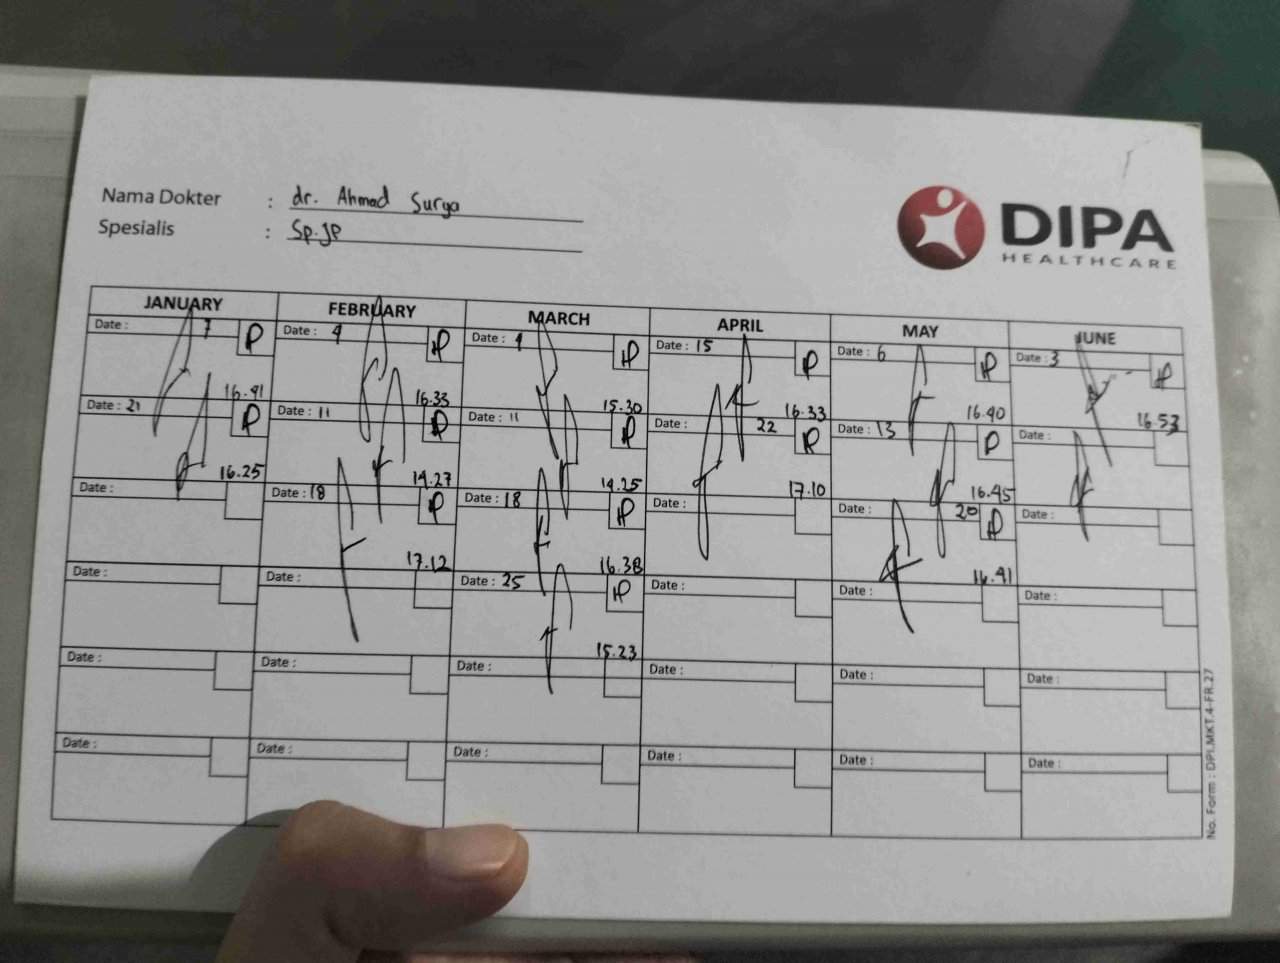 Nama Dokter : dr. Ahmad Surya
Spesialis : Sp.JP
DIPA
HEALTHCARE
JANUARY FEBRUARY MARCH APRIL MAY JUNE
Date : 7 Date : 4 Date : 4 Date : 15 Date : 6 Date : 3
16.41 16.33 15.30 16.33 16.40 16.53
Date : 21 Date : 11 Date : 11 Date : 22 Date : 13 Date :
16.25 14.27 14.25 17.10 16.45
Date : Date : 18 Date : 18 Date : Date : 20 Date :
17.12 16.38 16.41
Date : Date : Date : 25 Date : Date : Date :
15.23
Date : Date : Date : Date : Date : Date :
Date : Date : Date : Date : Date : Date :
No. Form : DPI.MKT.4-FR.27